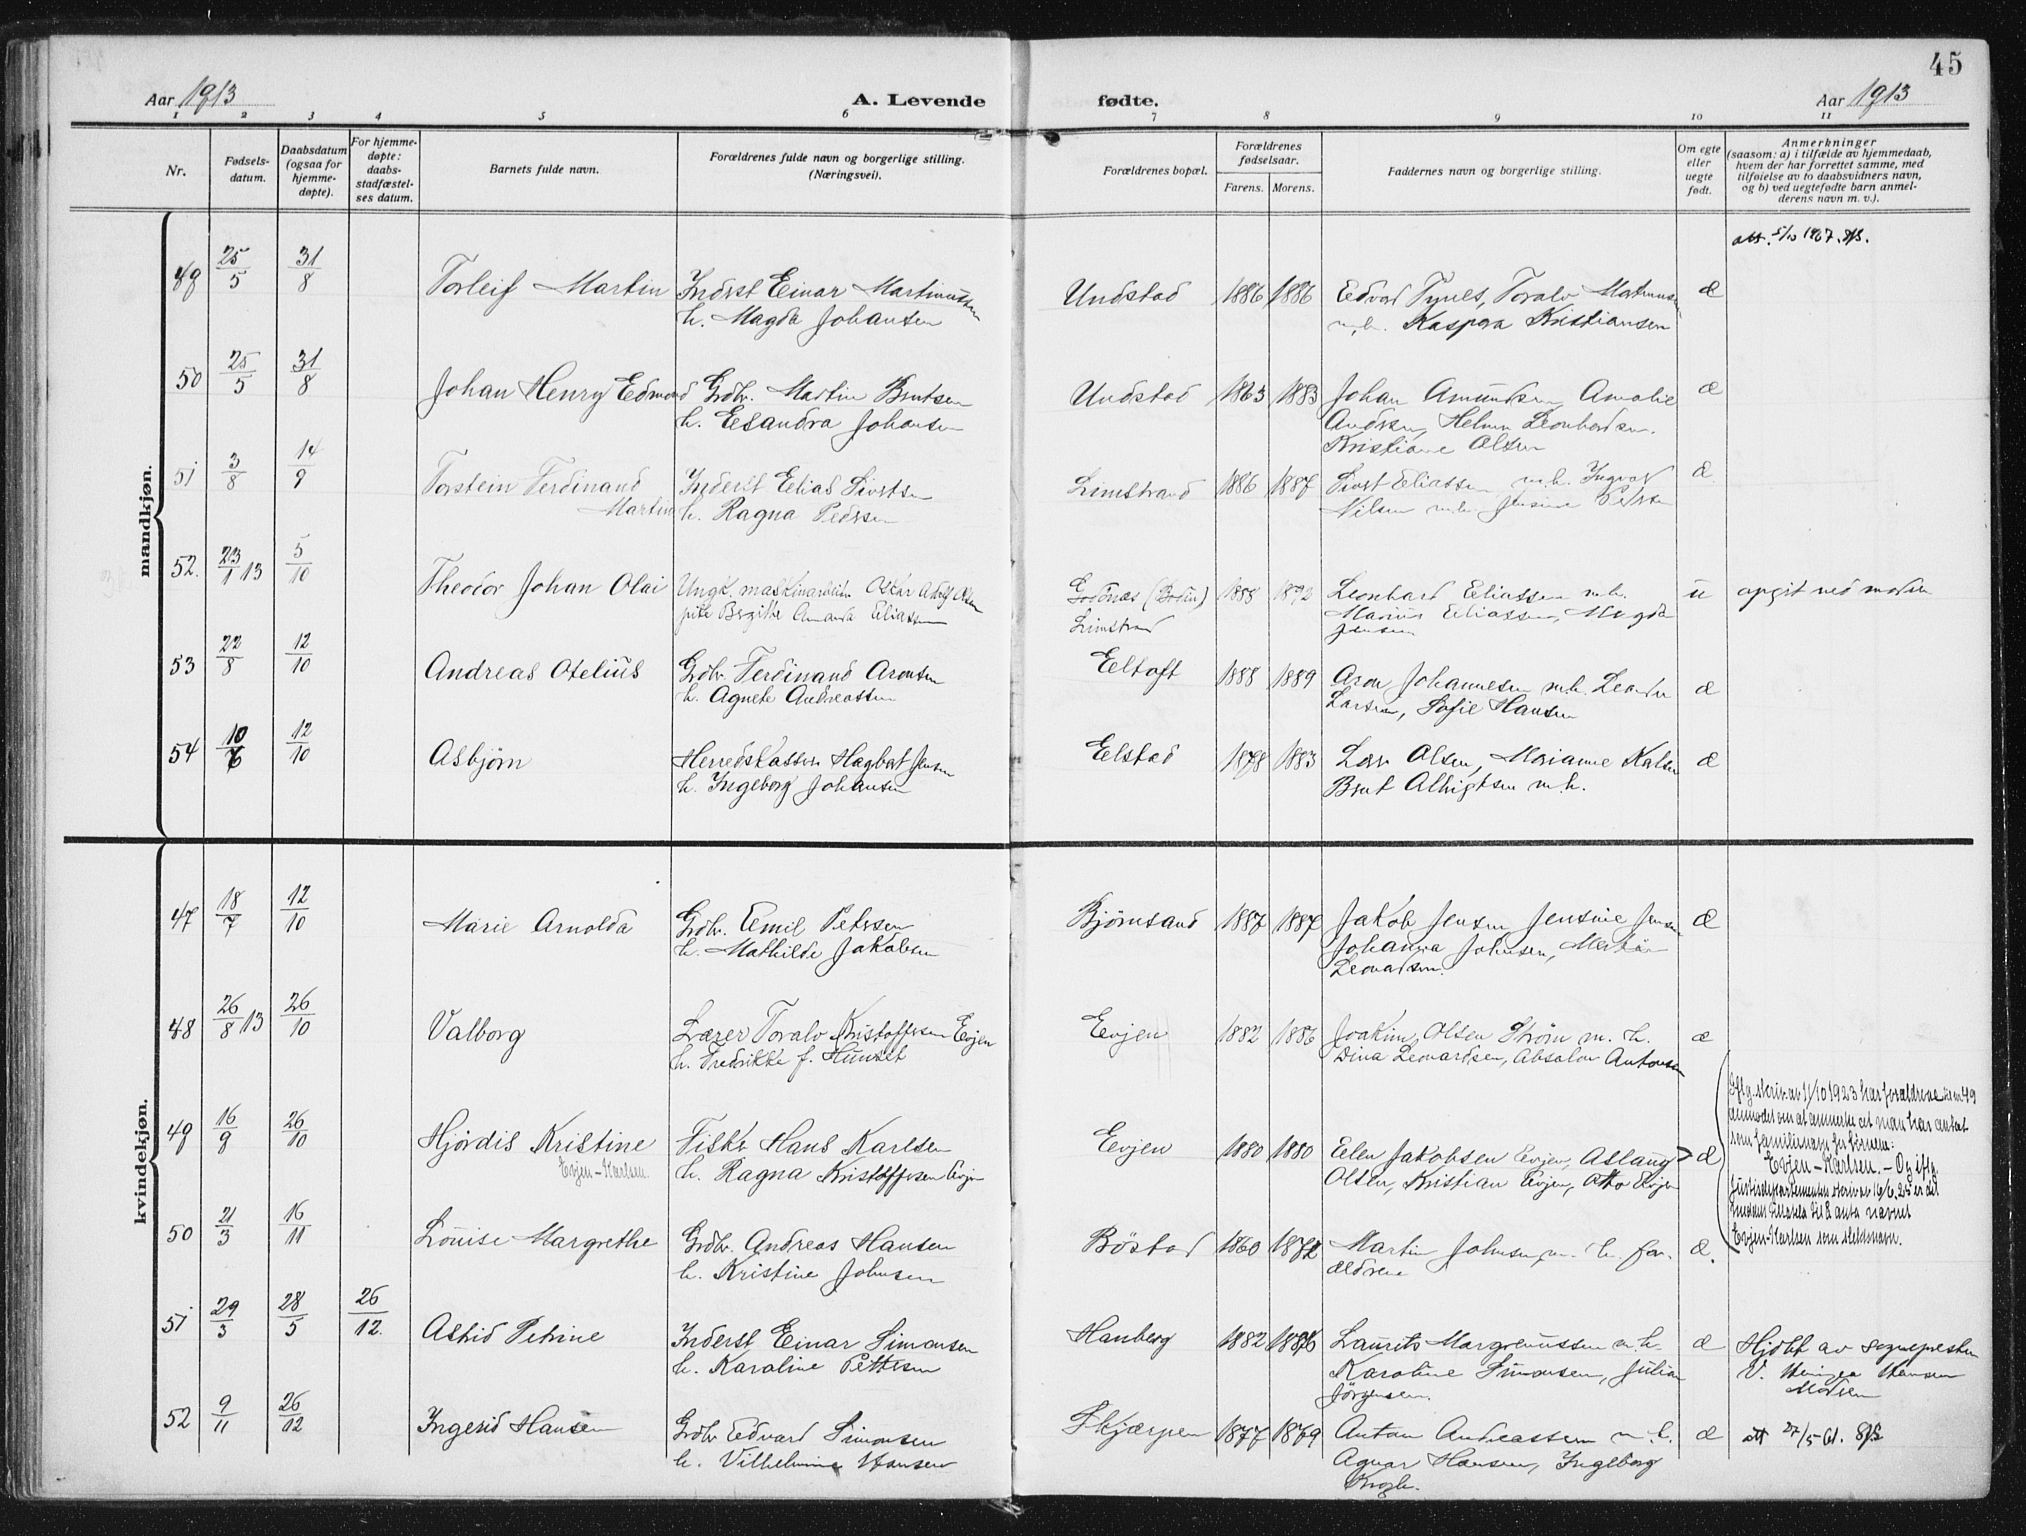 45
Aar 1913
A. Levende
fødte.
Aar 1913
1 2 3 4 5 6 7 8 9 10 11
Nr.
Fødsels-
datum.
Daabsdatum
(ogsaa for
hjemme-
døpte).
For hjemme-
døpte:
daabs-
stadfæstel-
ses datum.
Barnets fulde navn.
Forældrenes fulde navn og borgerlige stilling.
(Næringsvei).
Forældrenes bopæl.
Forældrenes
fødselsaar.
Farens. Morens.
Faddernes navn og borgerlige stilling.
Om egte
eller
uegte
født.
Anmerkninger
(saasom: a) i tilfælde av hjemmedaab,
hvem der har forrettet samme, med
tilføielse av to daabsvidners navn,
og b) ved uegtefødte barn anmel-
derens navn m. v.).
mandkjøn.
att. 5/10 1967.
49 25/5 31/8 Torleif Martin Inderst Einar Martinussen Undstad 1886 1886 Edvard Tynes, Toralv Martinus æ
h. Magda Johansen m.h. Kaspara Kristiansen
50 25/5 31/8 Johan Henry Edmond Grdbr. Martin Bentsen Undstad 1863 1883 Johan Amundsen Amalie æ
h. Elsandra Johansen Andersen, Helmer Leonhardsen.
Kristiane Olsen
51 3/8 14/9 Torstein Ferdinand Inderst Elias Sivertsen Limstrand 1886 1887 Sivert Eliassen m.h. Ingvar æ
Martin h. Ragna Pedersen Nilsen m.h. Jensine Pedersen
52. 23/1 13 5/10 Theodor Johan Olai Ungk. maskinarbeider Oskar Adolf Olsen Godønes (Bodin) 1888 1892 Leonhard Eliassen m.h. u opgit ved moderen
pike Bergitte Amanda Eliassen Limstrand Marius Eliassen, Magda
Jensen
53 22/8 12/10 Andreas Otelius Grdbr. Ferdinand Aronsen Eltoft 1888 1889 Aron Johannesen m.h. Leonder æ
h. Agnete Andreassen Larsen, Sofie Hansen
54 10/6 12/10 Asbjørn Herredskasserer Hagbart Jensen Elstad 1878 1883 Lars Olsen, Marianne Karlsen æ
h. Ingeborg Johansen Bernt Albrigtsen m.h.
kvindekjøn.
47 18/7 12/10 Marie Arnolda Grdbr. Emil Petersen Bjørnsand 1887 1887 Jakob Jensen Jensine Jensen æ
h. Mathilde Jakobsen Johanna Johnsen,
Leonardsen.
48 26/8 13 26/10 Valborg Lærer Toralv Kristoffersen Evjen Evjen 1882 1886 Joakim Olsen Strøm m. h. æ
h. Fredrikke f. Dina Leonardsen, Absalon Antonsen
49 16/9 26/10 Hjørdis Kristine Fisker Hans Karlsen Evjen 1880 1880 Elen Jakobsen Evjen, Aslaug æ
Evjen-Karlsen. h. Ragna Kristoffersen Evjen Olsen, Kristian Evjen, Otto Evjen
Iflg. skriv. av 1/10 1923 har forældrene til nr 49
anmodet om at anmerke at man har antat
som familienavn for børnene:
Evjen-Karlsen. - Og iflg.
Justisdepartementets skriv. av 16/6.25 er det
meddelt tilladelse til å anta navnet
Evjen-Karlsen som slektsnavn.
50 21/3 16/11 Louise Margrethe Grdbr. Andreas Hansen Bøstad 1860 1872 Martin Johnsen, m. h. for- æ.
h. Kristine Johnsen ældrene
51 29/3 28/5 26/12. Astrid Petrine Inderst Einar Simonsen Hanberg 1882 1886 Laurits Margrenussen m.h. æ Hjdbt av sognepresten
h. Karoline Pettersen Karoline Simonsen, Julian V. Hansen
Jørgensen. Moderen
52 9/11 26/12 Ingerid Hansen Grdbr Edvard Simonsen Skjærpen 1877 1879 Anton Andreassen m.h. æ att 27/5-61.
h. Vilhelmine Hansen Agnar Hansen, Ingeborg
Krogh.